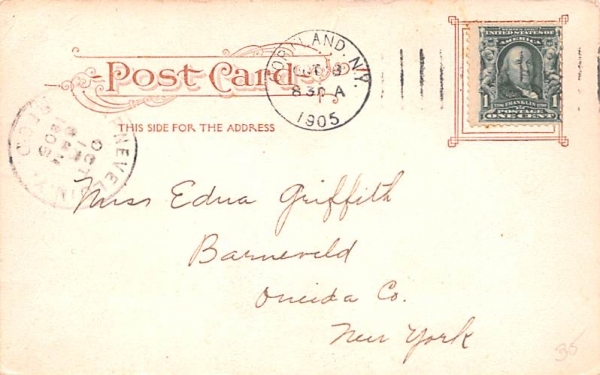 Post Card
THIS SIDE FOR THE ADDRESS
CORTLAND, N.Y.
OCT
830 A
1905
UNITED STATES OF AMERICA
1 FRANKLIN 1
POSTAGE
ONE CENT
OCT
REC'D
Miss Edna Griffith
Barneveld
Oneida Co.
New York
35